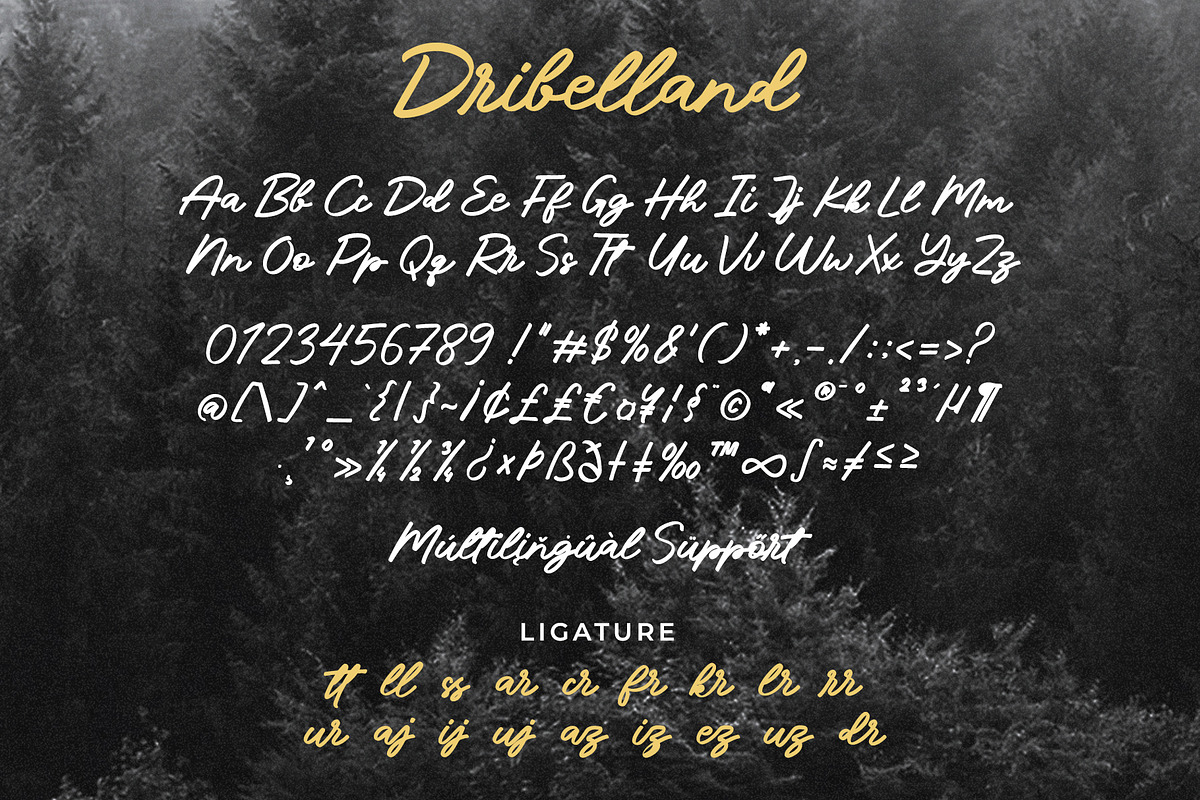 Dribelland
Aa Bb Cc Dd Ee Ff Gg Hh Ii Jj Kk Ll Mm
Nn Oo Pp Qq Rr Ss Tt Uu Vv Ww Xx Yy Zz
0123456789 !"#$%&'()*+,-./:;<=>?
@[\]^_`{|}~¡¢££€¤¥¦§¨©ª«®¯°±²³´µ¶
·¸¹º»¼½¾¿×Þßð†‡‰™∞∫≈≠≤≥
Múltilįňġûàl Süppőrt
LIGATURE
tt ll ss ar cr fr kr lr rr
ur aj ij uj az iz ez uz dr